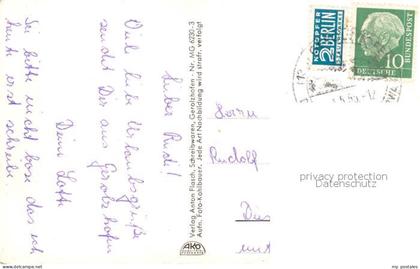 Lieber Rudi!
Viel liebe Urlaubsgrüße
sendet Dir aus Gerolzhofen
Deine Lotti
Sei bitte nicht böse das ich
heute erst schreibe.
Verlag Anton Flasch, Schreibwaren, Gerolzhofen - Nr. MG 6230-3
Aufn. Foto-Kohlbauer. Jede Art Nachbildung wird strafr. verfolgt
AKO
NOTOPFER
2 BERLIN
STEUERMARKE
DEUTSCHE
BUNDESPOST
10
Herrn
Rudolf
privacy protection
Datenschutz